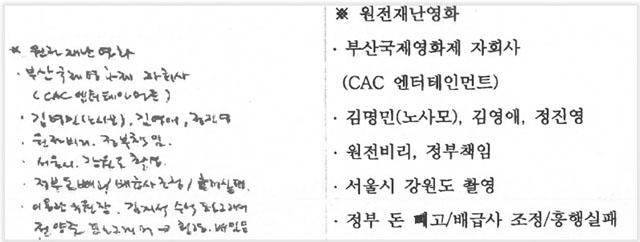 ※ 원전재난영화
· 부산국제영화제 자회사
(CAC 엔터테인먼트)
· 김명민(노사모), 김영애, 정진영
· 원전비리, 정부책임
· 서울시, 강원도 촬영
· 정부 돈 빼고/배급사 조정/흥행실패
· 이용관 위원장, 김지석 수석 프로그래머
전양준
※ 원전재난영화
· 부산국제영화제 자회사
(CAC 엔터테인먼트)
· 김명민(노사모), 김영애, 정진영
· 원전비리, 정부책임
· 서울시 강원도 촬영
· 정부 돈 빼고/배급사 조정/흥행실패